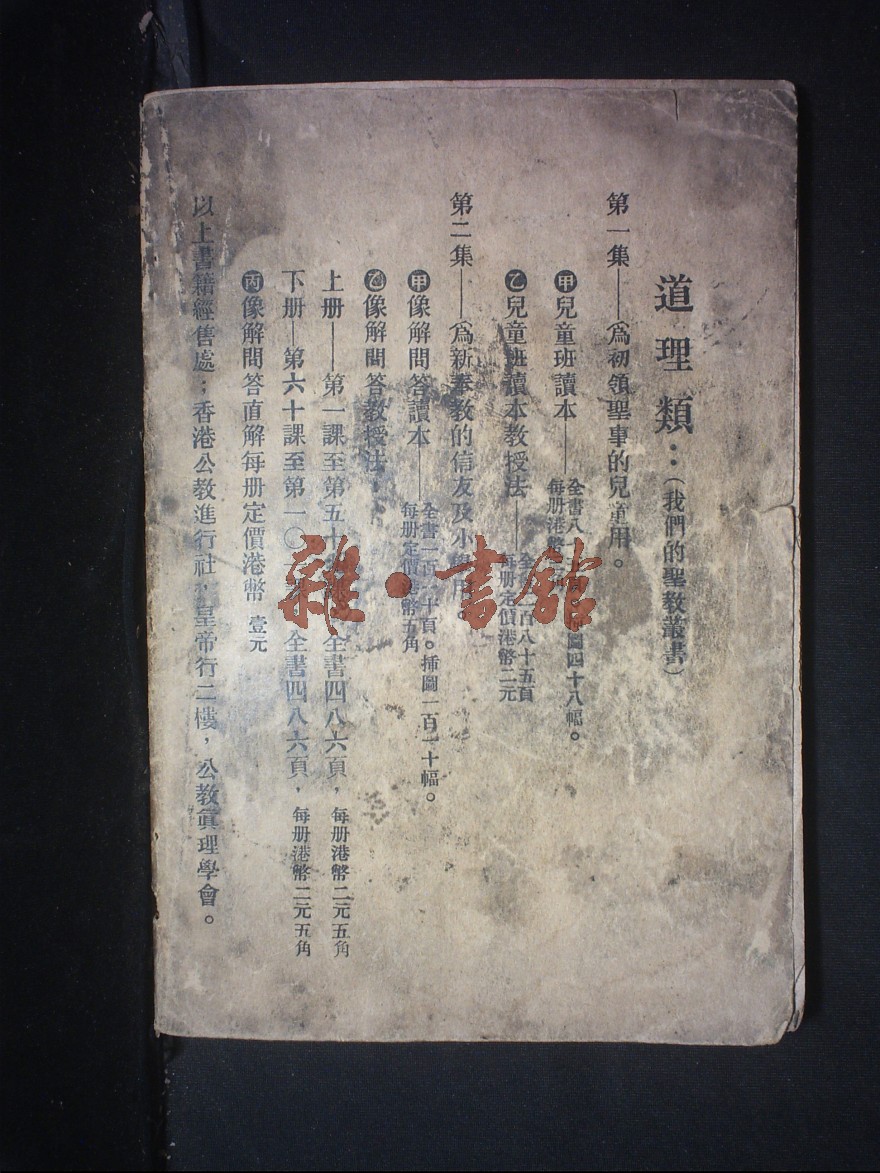 道理類：(我們的聖教叢書)
第一集——(為初領聖事的兒童用。
甲兒童班讀本——全書八 圖四十八幅。
每册港幣
乙兒童班讀本教授法——全 一百八十五頁
每册定價港幣二元
第二集——(為新奉教的信友及小學用
甲像解問答讀本——全書一百 十頁。插圖一百一十幅。
每册定價港幣五角
乙像解問答教授法：
上册——第一課至第五十 全書四八六頁，每册港幣二元五角
下册—第六十課至第一〇 全書四八六頁，每册港幣二元五角
丙像解問答直解每册定價港幣 壹元
以上書籍經售處；香港公教進行社，皇帝行二樓，公教眞理學會。
雜·書館